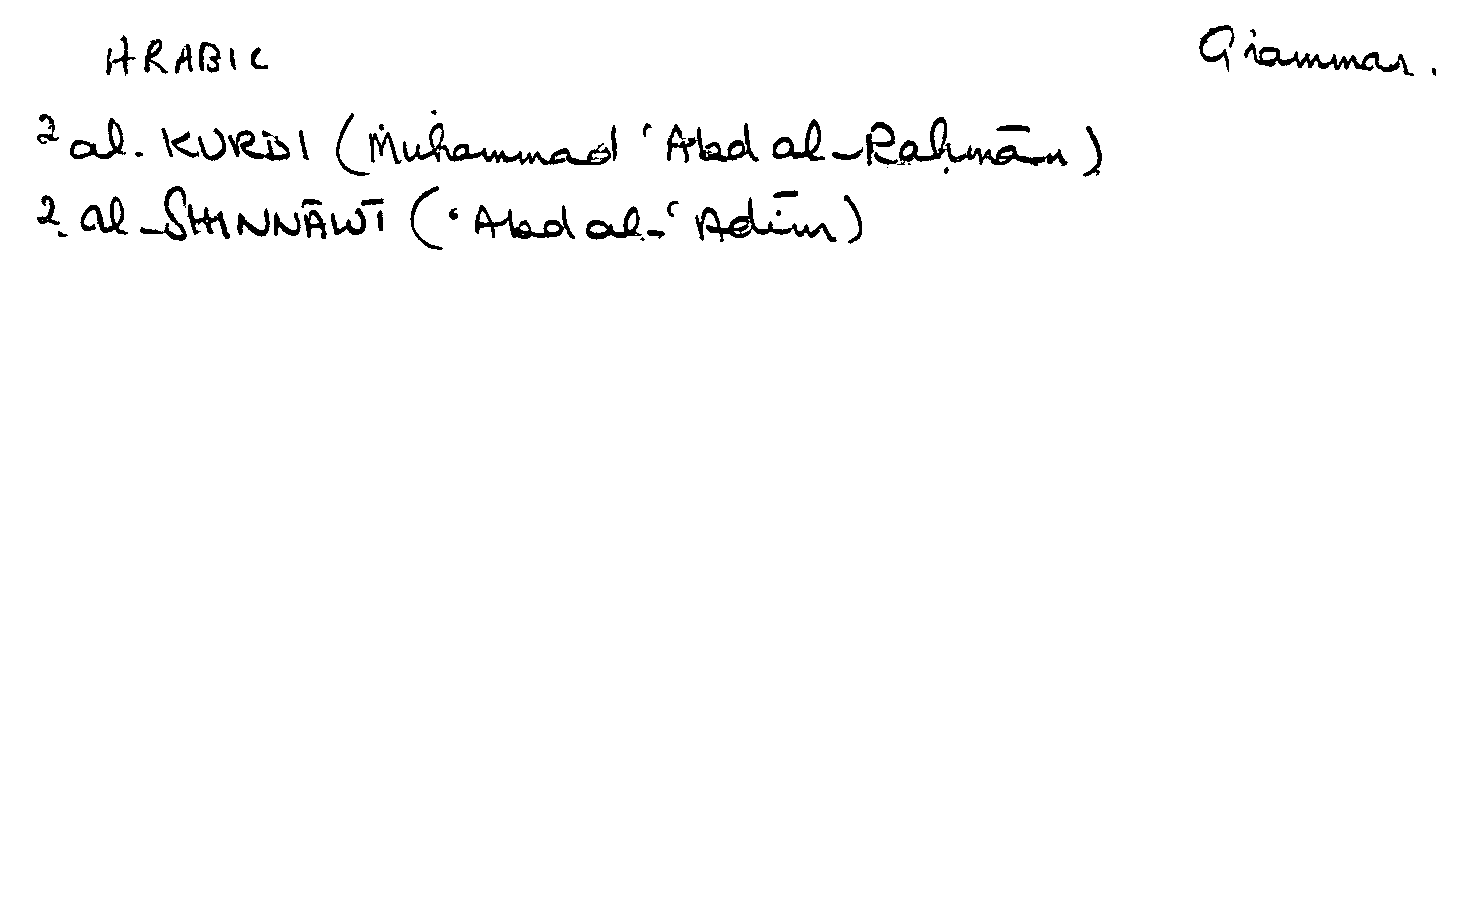 ARABIC Grammar.
2 al-KURDI (Muhammad 'Abd al-Raḥmān)
2. al-SHINNĀWĪ ('Abd al-'Adīm)